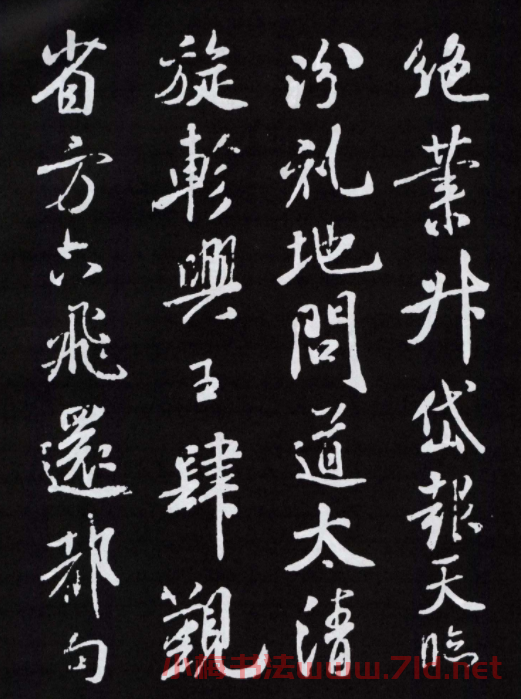 絶業升岱報天臨
汾礼地問道太清
旋軫興王肆觀
省方六飛還都句
小楷书法www.7ld.net